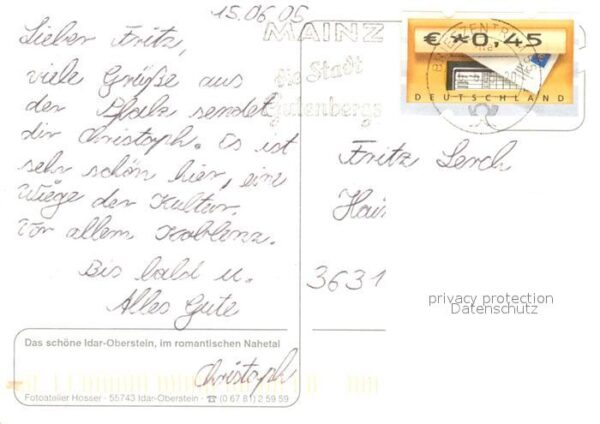 15.06.05
Lieber Fritz,
viele Grüße aus
der Pfalz sendet
dir Christoph. Es ist
sehr schön hier, eine
Wiege der Kultur.
Vor allem Koblenz.
Bis bald u.
Alles Gute
Christoph
MAINZ
die Stadt
Gutenbergs
BRIEFZENTRUM
€ *0,45
DEUTSCHLAND
Fritz Lerch
Hain
3631
privacy protection
Datenschutz
Das schöne Idar-Oberstein, im romantischen Nahetal
Fotoatelier Hosser · 55743 Idar-Oberstein · ☎ (0 67 81) 2 59 59